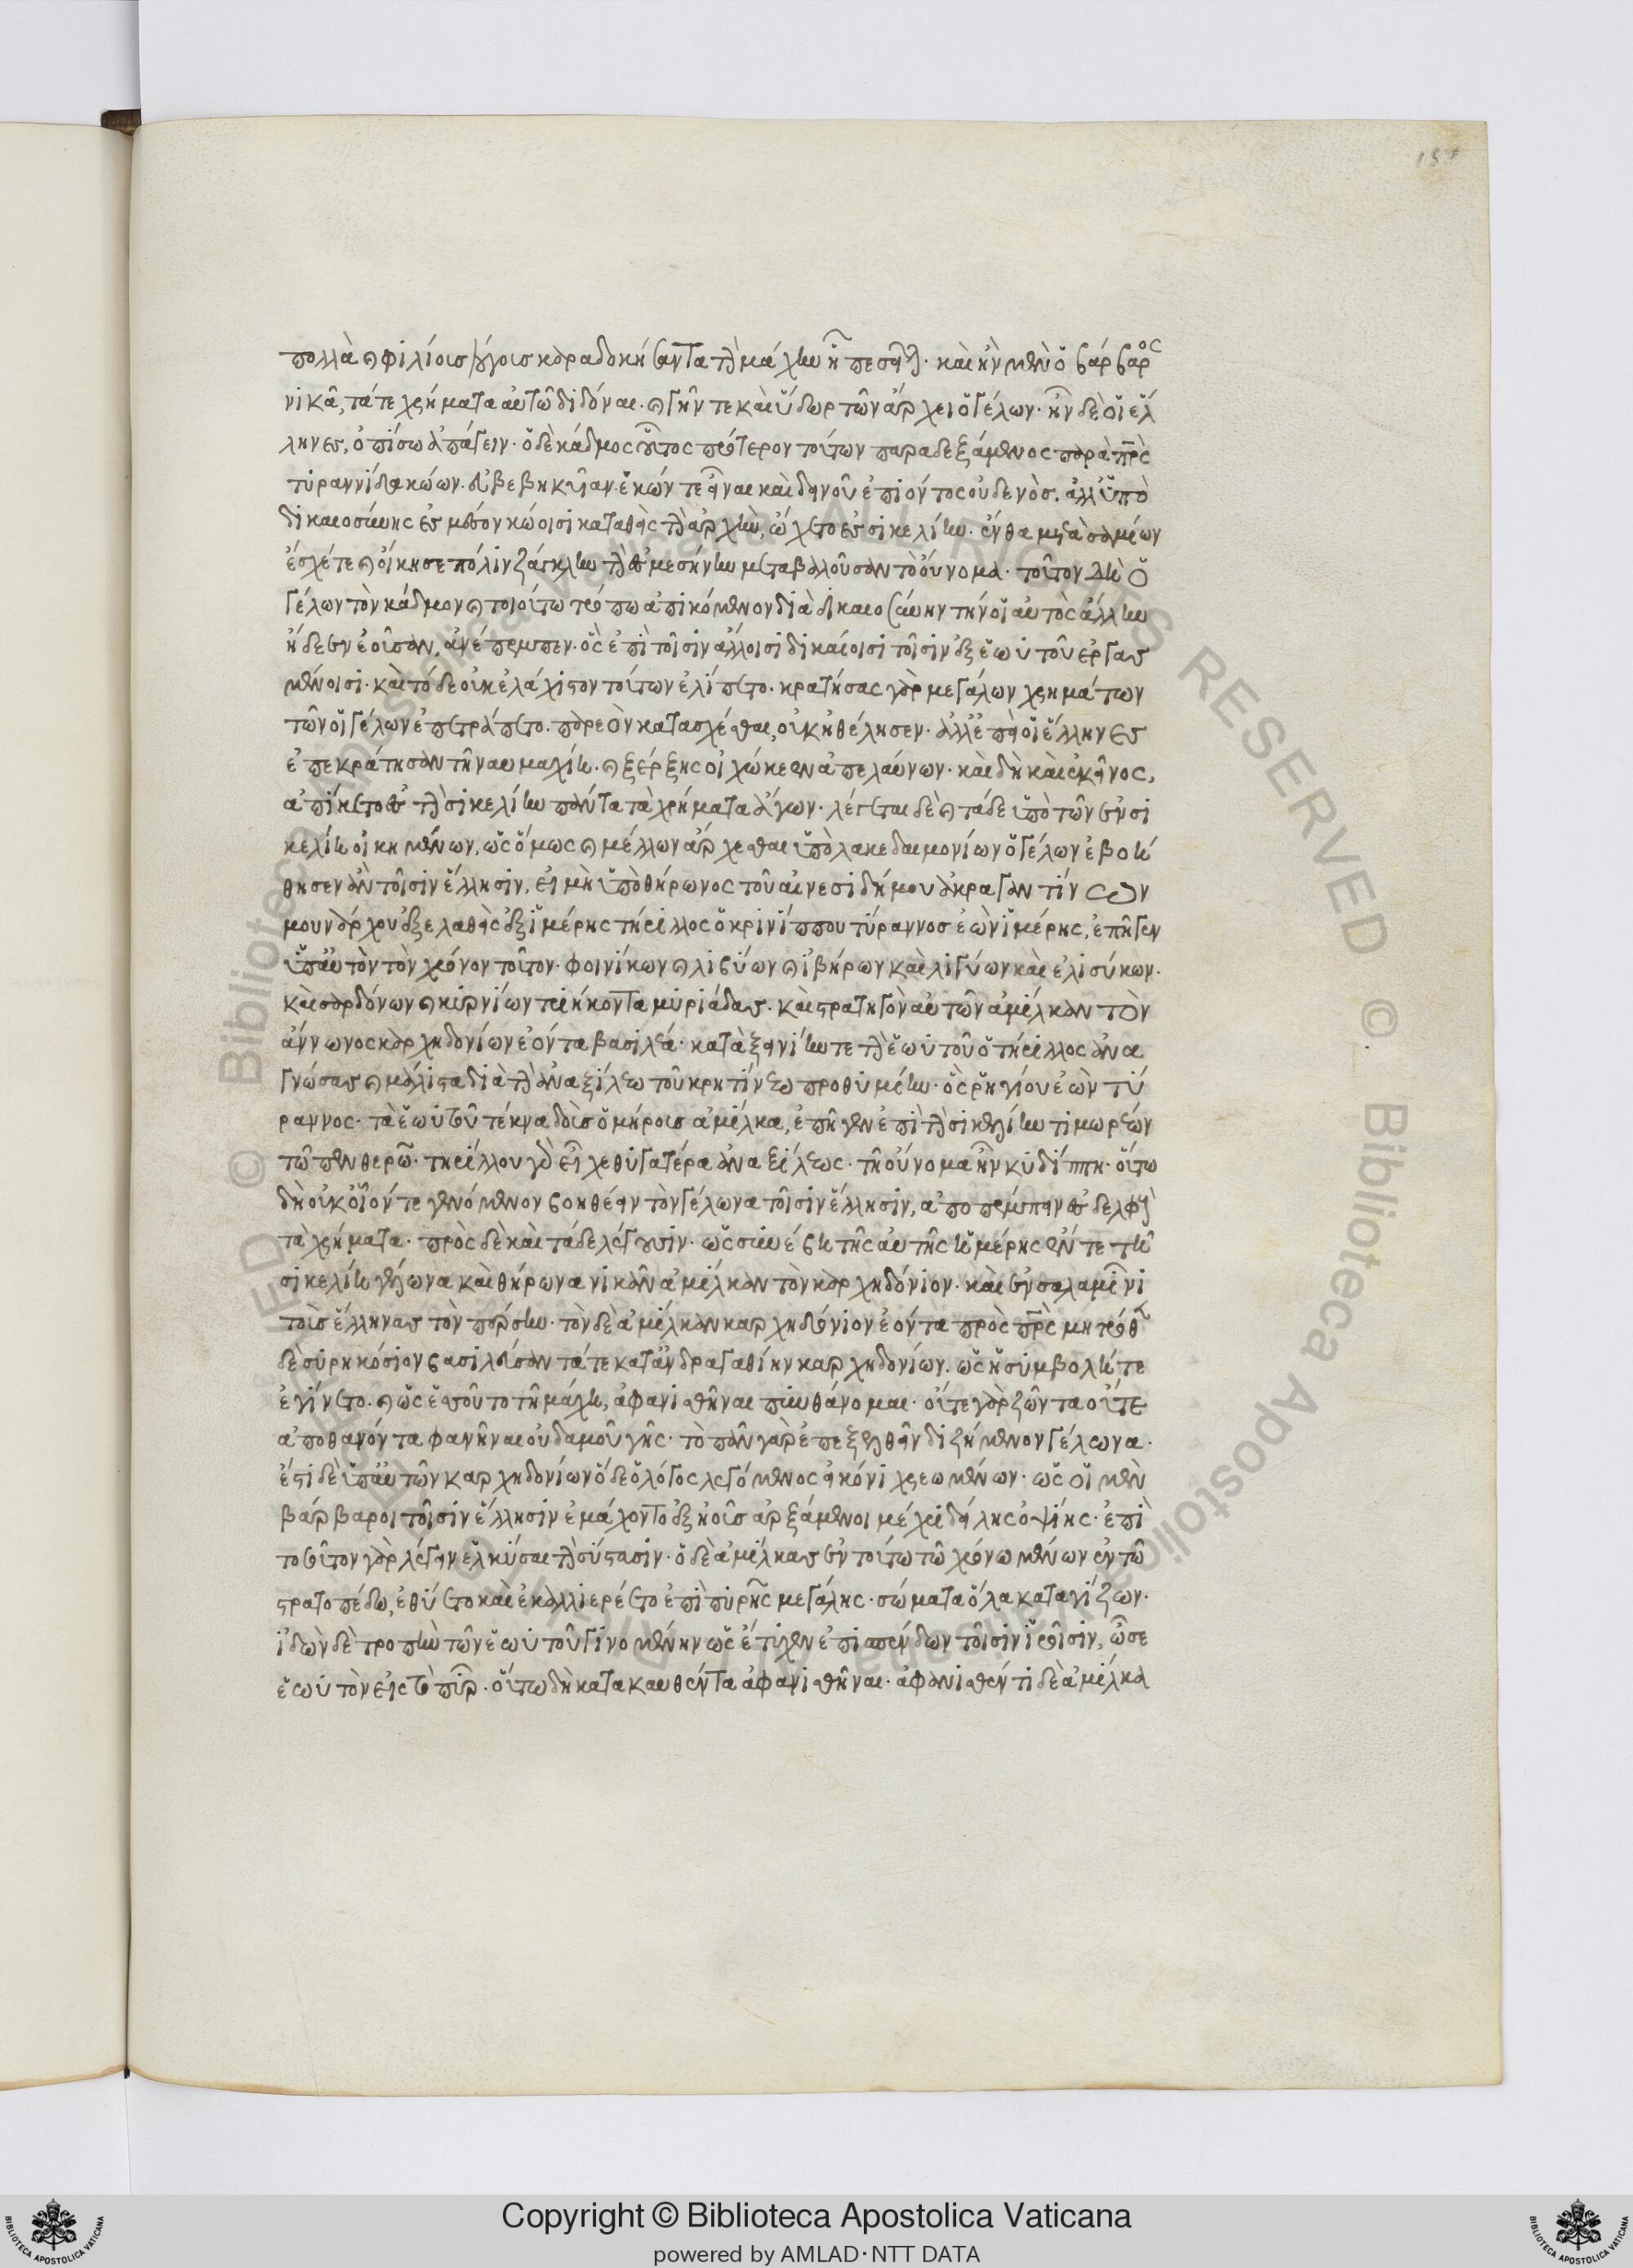 πολλὰ καὶ φιλίοις λόγοις καραδοκήσαντα τὴν μάχην ἧ πεσεῖται· καὶ ἢν μὲν ὁ βάρβαρος
νικᾶ, τά τε χρήματα αὐτῶ διδόναι· καὶ γῆν τε καὶ ὕδωρ τῶν ἄρχει ὁ Γέλων· ἢν δὲ οἱ ἕλ
ληνες, ὀπίσω ἀπάγειν· ὁ δὲ κάδμος οὗτος πρότερον τούτων παραδεξάμενος παρὰ πατρὸς
τυραννίδα κώων· εὖ βεβηκυῖαν· ἑκών τε εἶναι καὶ δεινοῦ ἐπιόντος οὐδενὸς· ἀλλ' ὑπὸ
δικαιοσύνης ἐς μέσον κώοισι καταθεὶς τὴν ἀρχὴν, ὤχετο ἐς σικελίην· ἔνθα μετὰ σαμίων
ἔσχε τε καὶ οἴκησε πόλιν ζάγκλην τὴν ἐς μεσήνην μεταβαλοῦσαν τὸ οὔνομα· τοῦτον δὴ ὁ
γέλων τὸν κάδμον καὶ τοιούτω τρόπω ἀπικόμενον διὰ δικαιοσύνην τήν οἱ αὐτὸς ἄλλην
ἤδεεν ἐοῦσαν, ἀνέπεμπεν· ὃς ἐπὶ τοῖσιν ἄλλοισι δικαίοισι τοῖσιν ἐξ ἑωυτοῦ ἐργας
μένοισι· καὶ τόδε οὐκ ἐλάχιστον τούτων ἐλίπετο· κρατήσας γὰρ μεγάλων χρημάτων
τῶν οἱ γέλων ἐπετράπετο· παρεὸν κατασχέσθαι, οὐκ ἠθέλησεν· ἀλλ' ἐπεὶ οἱ ἕλληνες
ἐπεκράτησαν τῆ ναυμαχίη· καὶ ξέρξης οἰχώκεεν ἀπελαύνων· καὶ δὴ καὶ ἐκεῖνος,
ἀπίκετο ἐς τὴν σικελίην πάντα τὰ χρήματα ἄγων· λέγεται δὲ καὶ τάδε ὑπὸ τῶν ἐν σι
κελίη οἰκημένων, ὡς ὅμως καὶ μέλλων ἄρχεσθαι ὑπὸ λακεδαιμονίων ὁ γέλων ἐβοή
θησεν ἂν τοῖσιν ἕλλησιν, εἰ μὴ ὑπὸ θήρωνος τοῦ αἰνεσιδήμου ἀκραγαντίνων
μουνάρχου ἐξελαθεὶς ἐξ ἱμέρης τήριλλος ὁ κρινίππου τύραννος ἐὼν ἱμέρης, ἐπῆγεν
ὑπ' αὐτὸν τὸν χρόνον τοῦτον· φοινίκων καὶ λιβύων καὶ ἰβήρων καὶ λιγύων καὶ ἐλισύκων·
καὶ σαρδόνων καὶ κυρνίων τριήκοντα μυριάδας· καὶ στρατηγὸν αὐτῶν ἀμίλκαν τὸν
ἄννωνος καρχηδονίων ἐόντα βασιλέα· κατὰ ξεινίην τε τὴν ἑωυτοῦ ὁ τήριλλος ἀνα
γνώσας καὶ μάλιστα διὰ τὴν ἀναξίλεω τοῦ κρητίνεω προθυμίην· ὃς ῥηγίου ἐὼν τύ
ραννος· τὰ ἑωυτοῦ τέκνα δοὺς ὁμήρους ἀμίλκα, ἐπῆγεν ἐπὶ τὴν σικελίην τιμωρέων
τῶ πενθερῶ· τηρίλλου γὰρ εἶχε θυγατέρα ἀναξίλεως· τῆ οὔνομα ἦν κυδίππη· οὕτω
δὴ οὐκ οἷόν τε γενόμενον βοηθέειν τὸν γέλωνα τοῖσιν ἕλλησιν, ἀποπέμπειν ἐς δελφοὺς
τὰ χρήματα· πρὸς δὲ καὶ τάδε λέγουσιν· ὡς συνέβη τῆς αὐτῆς ἡμέρης ἔν τε τῆ
σικελίη γέλωνα καὶ θήρωνα νικᾶν ἀμίλκαν τὸν καρχηδόνιον· καὶ ἐν σαλαμῖνι
τοὺς ἕλληνας τὸν πέρσην· τὸν δὲ ἀμίλκαν καρχηδόνιον ἐόντα πρὸς πατρὸς μητρόθεν
δὲ συρηκόσιον βασιλεύσαντά τε κατ' ἀνδραγαθίην καρχηδονίων· ὡς ἡ συμβολή τε
ἐγίνετο· καὶ ὡς ἑσσοῦτο τῆ μάχη, ἀφανισθῆναι πυνθάνομαι· οὔτε γὰρ ζῶντα οὔτε
ἀποθανόντα φανῆναι οὐδαμοῦ γῆς· τὸ πᾶν γὰρ ἐπεξελθεῖν διζήμενον γέλωνα·
ἔστι δὲ ὑπ' αὐτῶν καρχηδονίων ὅδε ὁ λόγος λεγόμενος εἰκόνι χρεωμένων· ὡς οἱ μὲν
βάρβαροι τοῖσιν ἕλλησιν ἐμάχοντο ἐξ ἠοῦς ἀρξάμενοι μέχρι δείλης ὀψίης· ἐπὶ
τοσοῦτον γὰρ λέγειν ἑλκύσαι τὴν σύστασιν· ὁ δὲ ἀμίλκας ἐν τούτω τῶ χρόνω μένων ἐν τῶ
στρατοπέδω, ἐθύετο καὶ ἐκαλλιερέετο ἐπὶ πυρῆς μεγάλης· σώματα ὅλα καταγίζων·
ἰδὼν δὲ τροπὴν τῶν ἑωυτοῦ γινομένην ὡς ἔτυχεν ἐπισπένδων τοῖσιν ἱροῖσιν, ὦσε
ἑωυτὸν εἰς τὸ πῦρ· οὕτω δὴ κατακαυθέντα ἀφανισθῆναι· ἀφανισθέντι δὲ ἀμίλκα
Copyright © Biblioteca Apostolica Vaticana
powered by AMLAD·NTT DATA